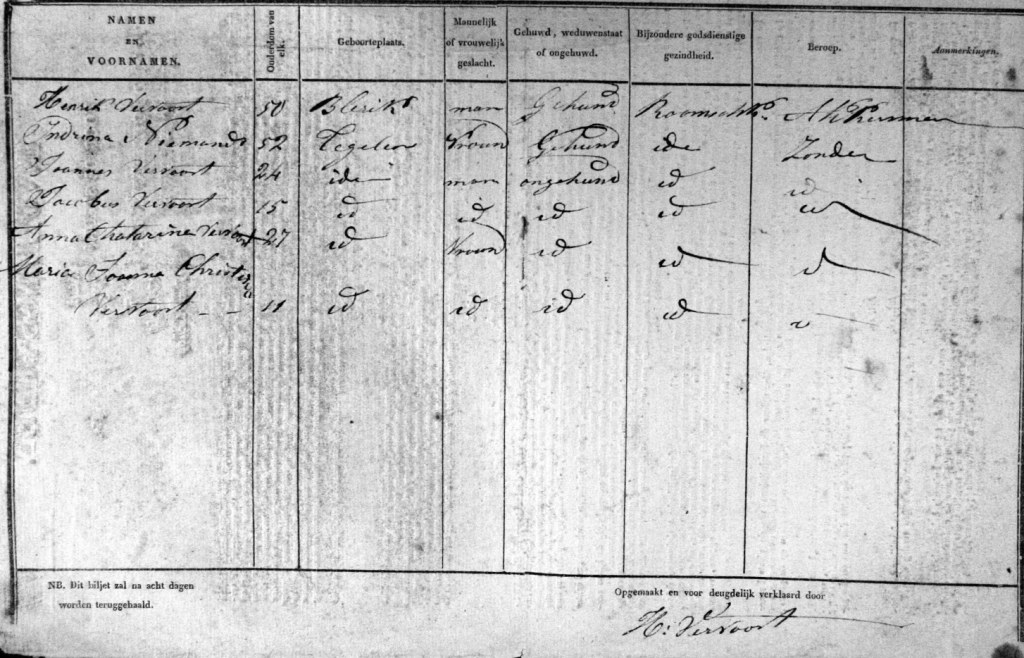 NAMEN EN VOORNAMEN. Ouderdom van elk. Geboorteplaats. Mannelijk of vrouwelijk geslacht. Gehuwd, weduwenstaat of ongehuwd. Bijzondere godsdienstige gezindheid. Beroep. Aanmerkingen.
Henrik Vervoort 50 Blerik man Gehuwd Roomsch
Indrina Niemands 52 Tegelen Vrouw Gehuwd ide Zonder
Joannes Vervoort 24 ide man ongehuwd id id
Jacobus Vervoort 15 id id id id id
Anna Chatarina Vervoort 27 id Vrouw id id id
Maria Joanna Christina
Vervoort - - 11 id id id id
NB. Dit biljet zal na acht dagen
worden teruggehaald.
Opgemaakt en voor deugdelijk verklaard door
H: Vervoort